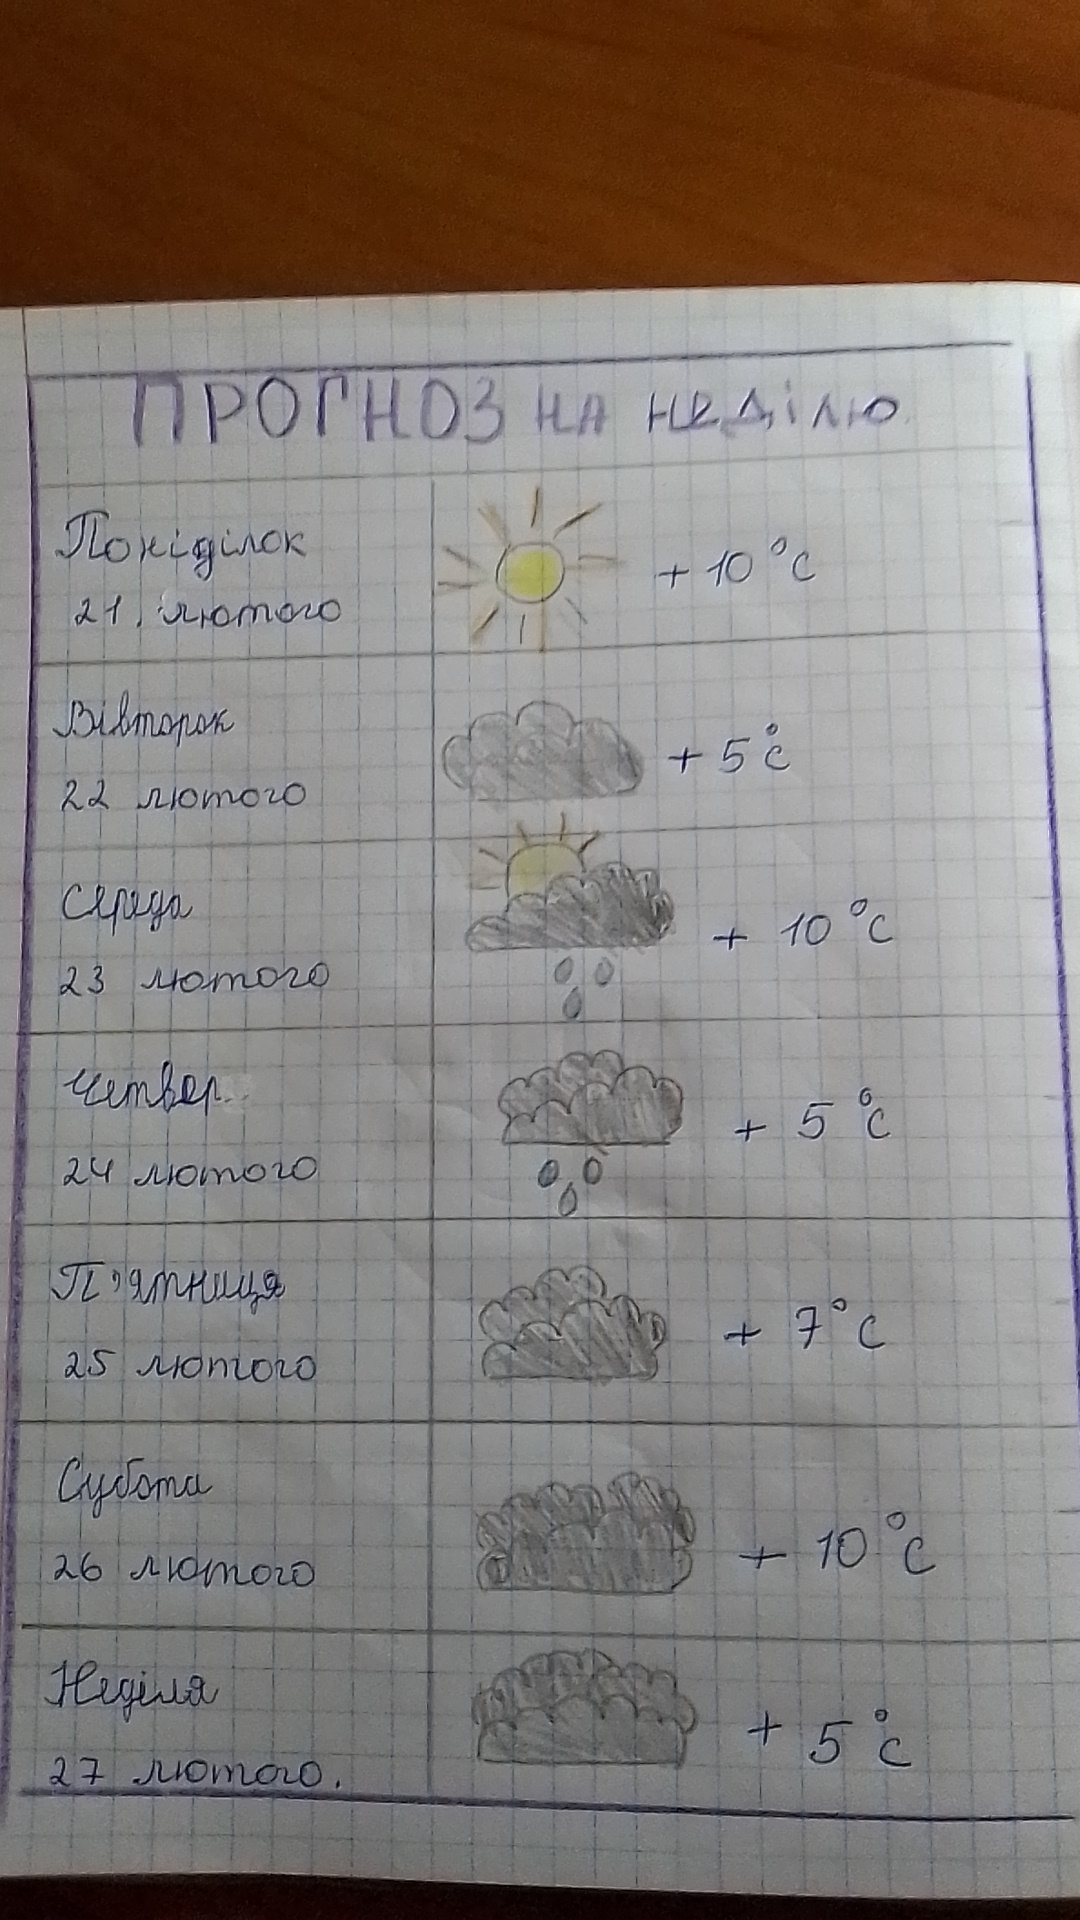 ПРОГНОЗ НА НЕДІЛЮ
Поніділок
+ 10 °С
21. лютого
Вівторок
+ 5 °С
22 лютого
Середа
+ 10 °С
23 лютого
Четвер
+ 5 °С
24 лютого
П'ятниця
+ 7 °С
25 лютого
Субота
+ 10 °С
26 лютого
Неділя
+ 5 °С
27 лютого.